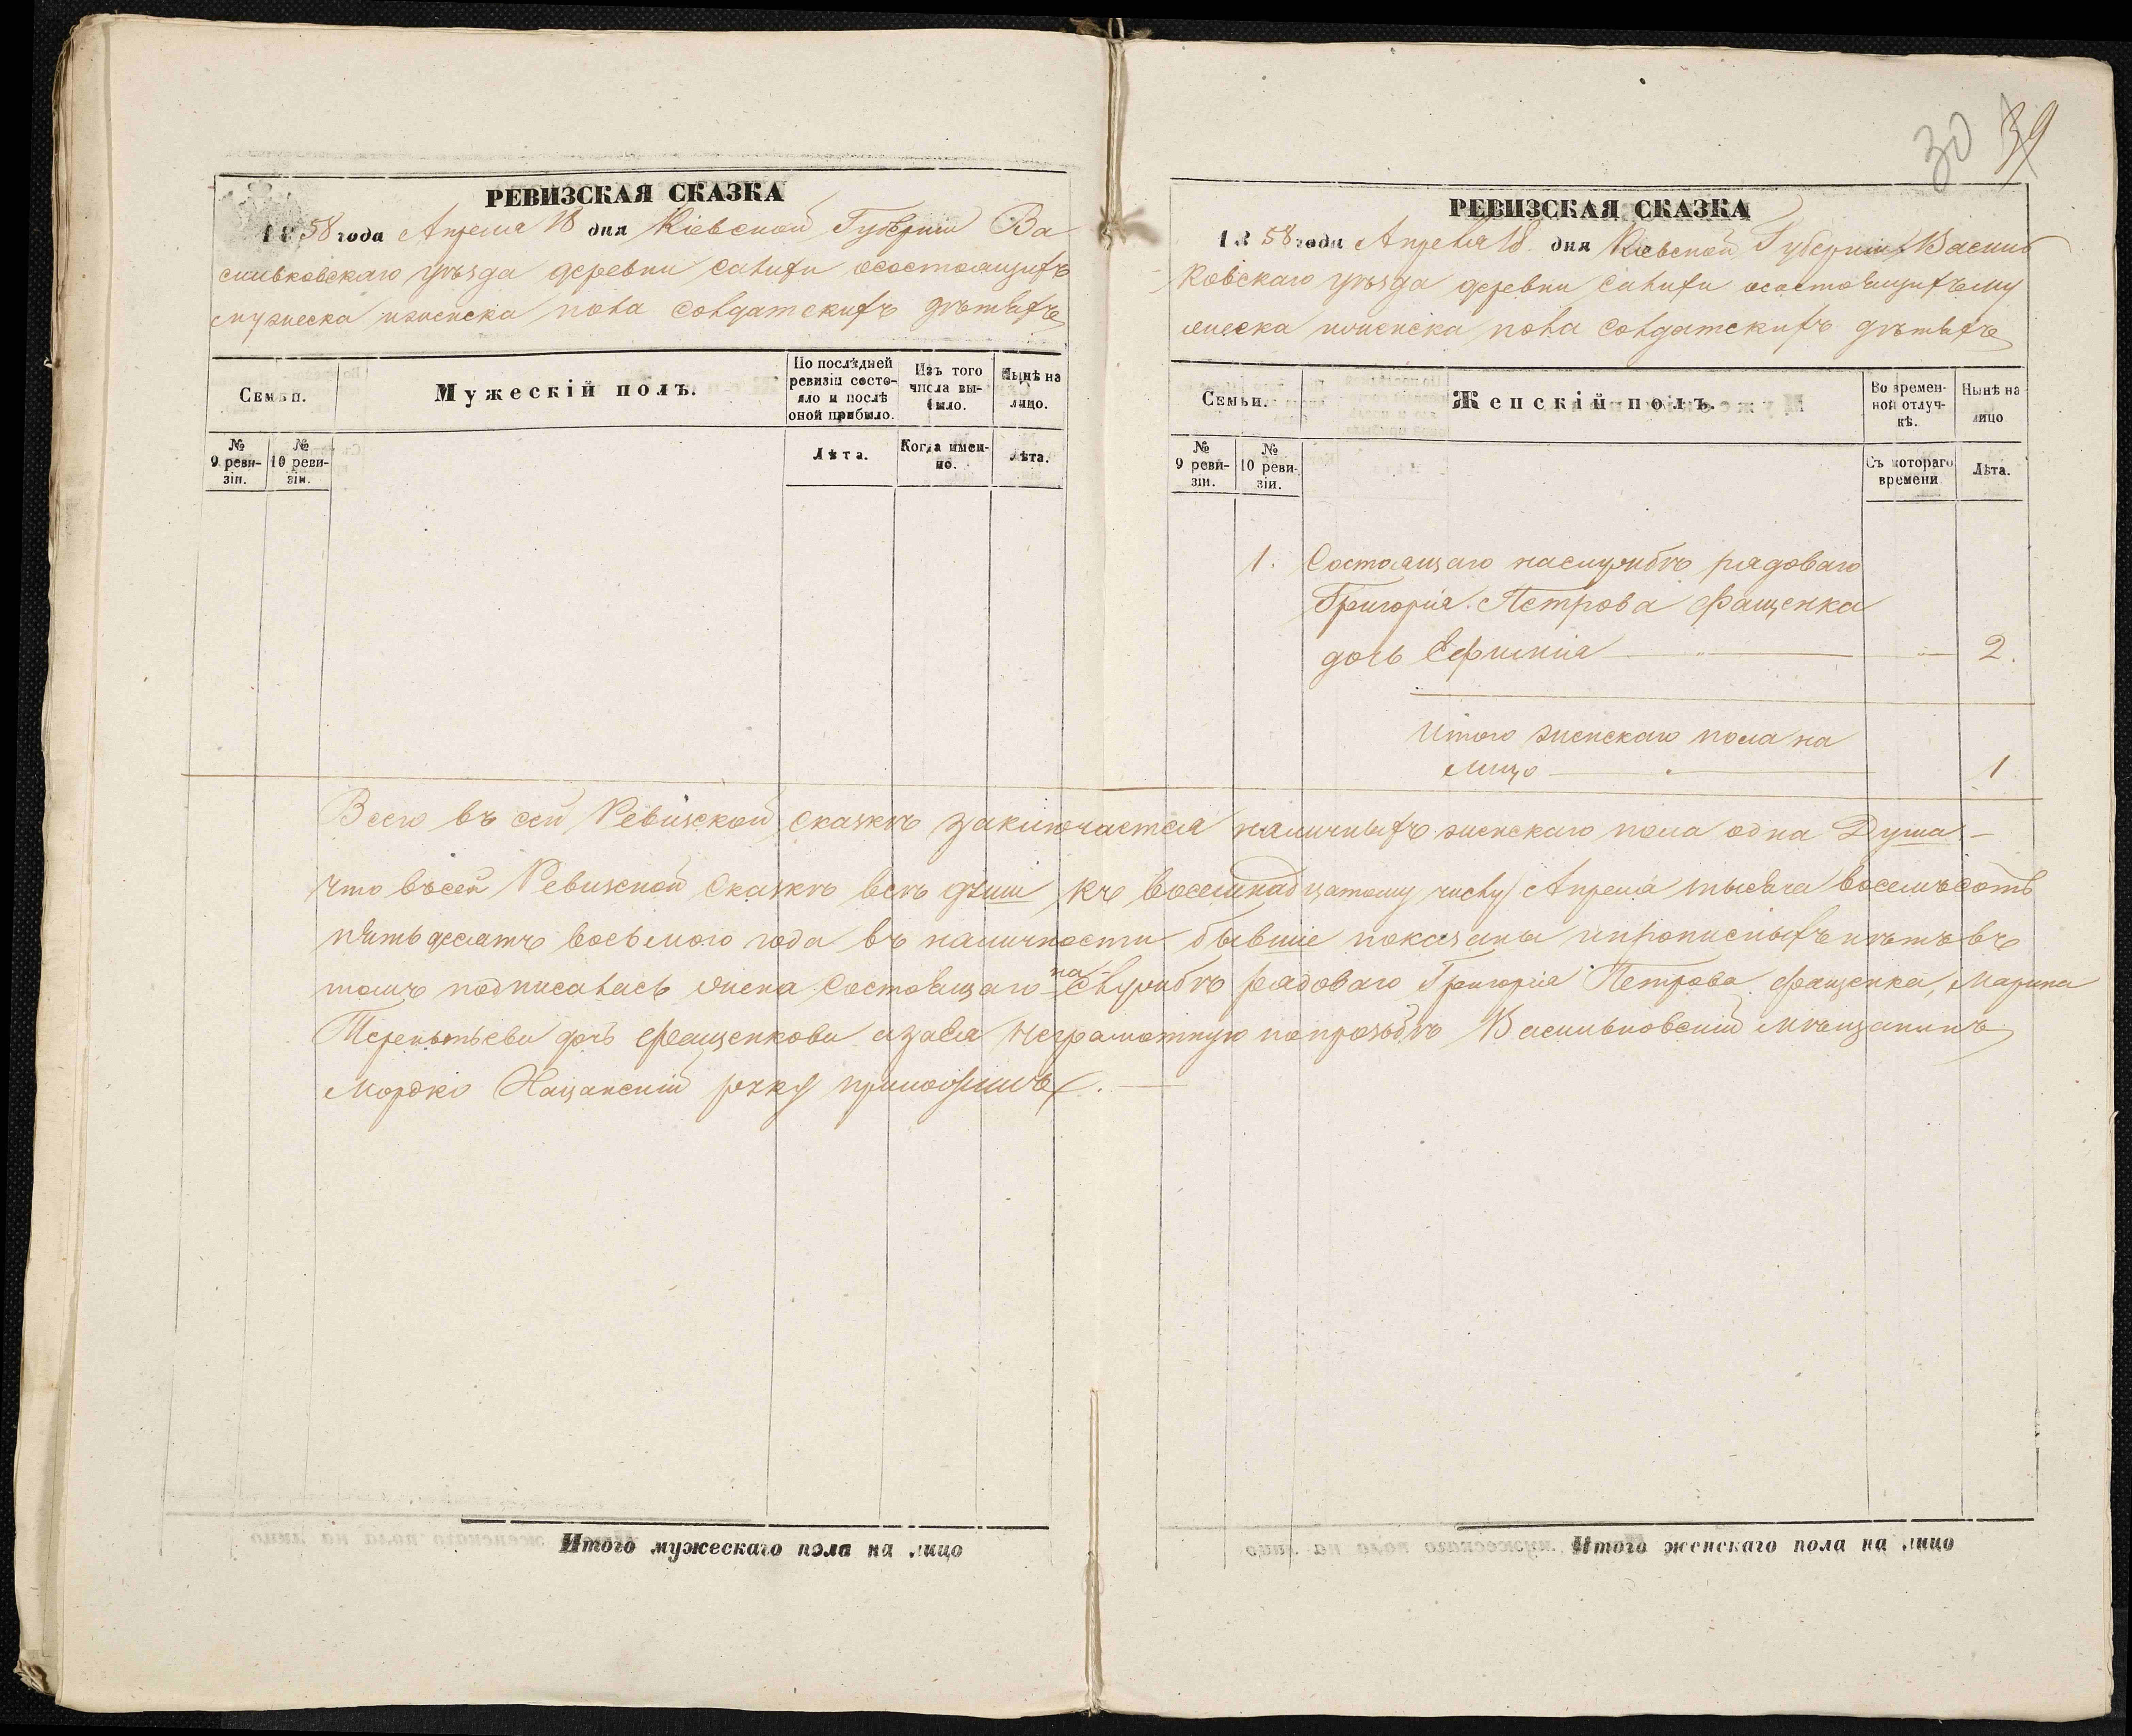 30 39
РЕВИЗСКАЯ СКАЗКА
1858 года Апреля 18 дня Кіевской Губерніи Ва
сильковскаго уѣзда деревни Салихи осостоящихъ
мужеска иженска пола Солдатскихъ дѣтяхъ
Семьи.
Мужескій полъ.
По послѣдней ревизіи состояло и послѣ оной прибыло.
Изъ того числа выбыло.
Нынѣ на лицо.
№ 9 ревизіи.
№ 10 ревизіи.
Лѣта.
Когда именно.
Лѣта.
РЕВИЗСКАЯ СКАЗКА
1858 года Апреля 18 дня Кіевской Губерніи Василь
ковскаго уѣзда деревни Салихи осостоящихъ му
жеска иженска пола Солдатскихъ дѣтяхъ
Семьи.
Женскій полъ.
Во временной отлучкѣ.
Нынѣ на лицо
№ 9 ревизіи.
№ 10 ревизіи.
Съ котораго времени
Лѣта.
1. Состоящаго наслужбѣ рядоваго
Григорія Петрова Фащенка
дочь Ефимія 2.
Итого женскаго пола на
лицо 1
Всего въ сей Ревизской Сказкѣ заключается наличныхъ женскаго пола одна Душа
что въсей Ревизской Сказкѣ всѣ души къ восемнадцатому числу Апреля тысяча восемьсотъ
пятьдесятъ восьмого года въ наличности бывшіе показаны ипрописныхъ нѣтъ въ
томъ подписалась жена Состоящаго на Службѣ рядоваго Григорія Петрова Фащенка, Марина
Терентьева дочь Фащенкова азанея Неграмотную попрозьбѣ Васильковскій Мѣщанинъ
Мордко Хащанскій руку приложилъ.
Итого мужескаго пола на лицо
Итого женскаго пола на лицо